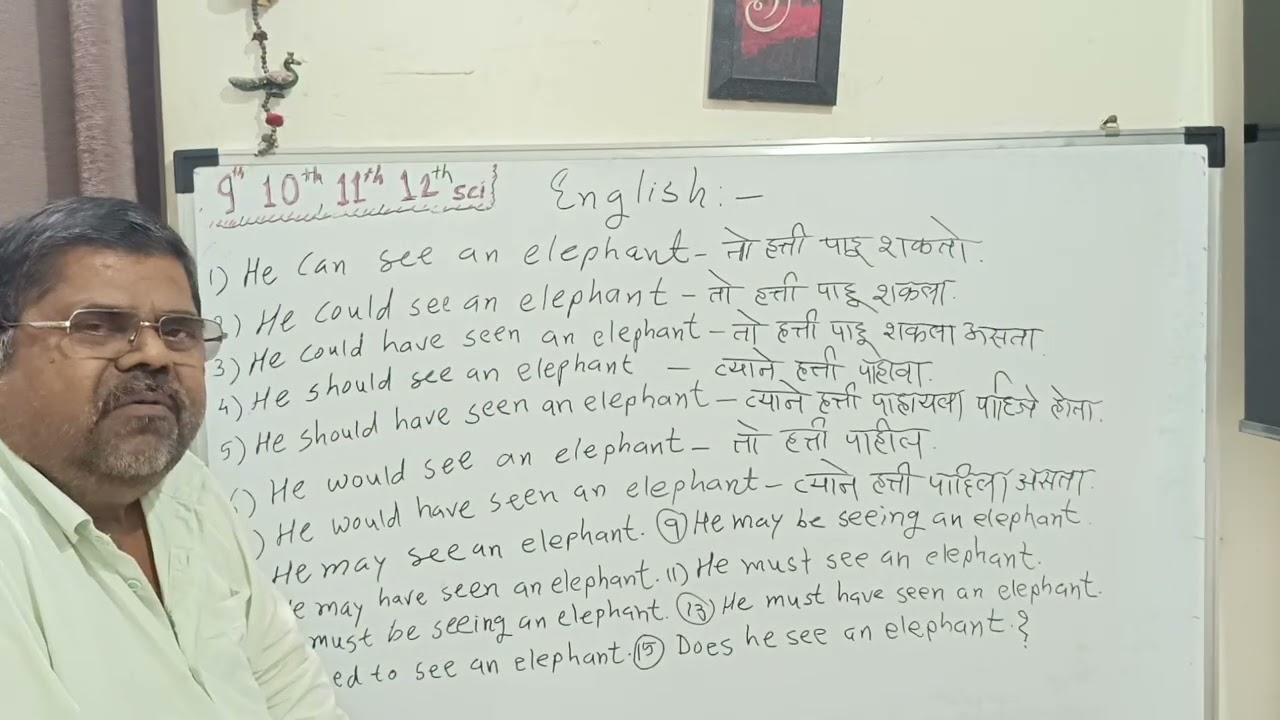 9th 10th 11th 12th sci}
English :-
1) He can see an elephant - तो हत्ती पाहू शकतो.
2) He could see an elephant - तो हत्ती पाहू शकला.
3) He could have seen an elephant - तो हत्ती पाहू शकला असता.
4) He should see an elephant - त्याने हत्ती पाहावा.
5) He should have seen an elephant - त्याने हत्ती पाहायला पाहिजे होता.
) He would see an elephant - तो हत्ती पाहील.
) He would have seen an elephant - त्याने हत्ती पाहिला असता.
He may see an elephant. 9 He may be seeing an elephant.
may have seen an elephant. 11) He must see an elephant.
must be seeing an elephant. 13 He must have seen an elephant.
ed to see an elephant. 15 Does he see an elephant.?